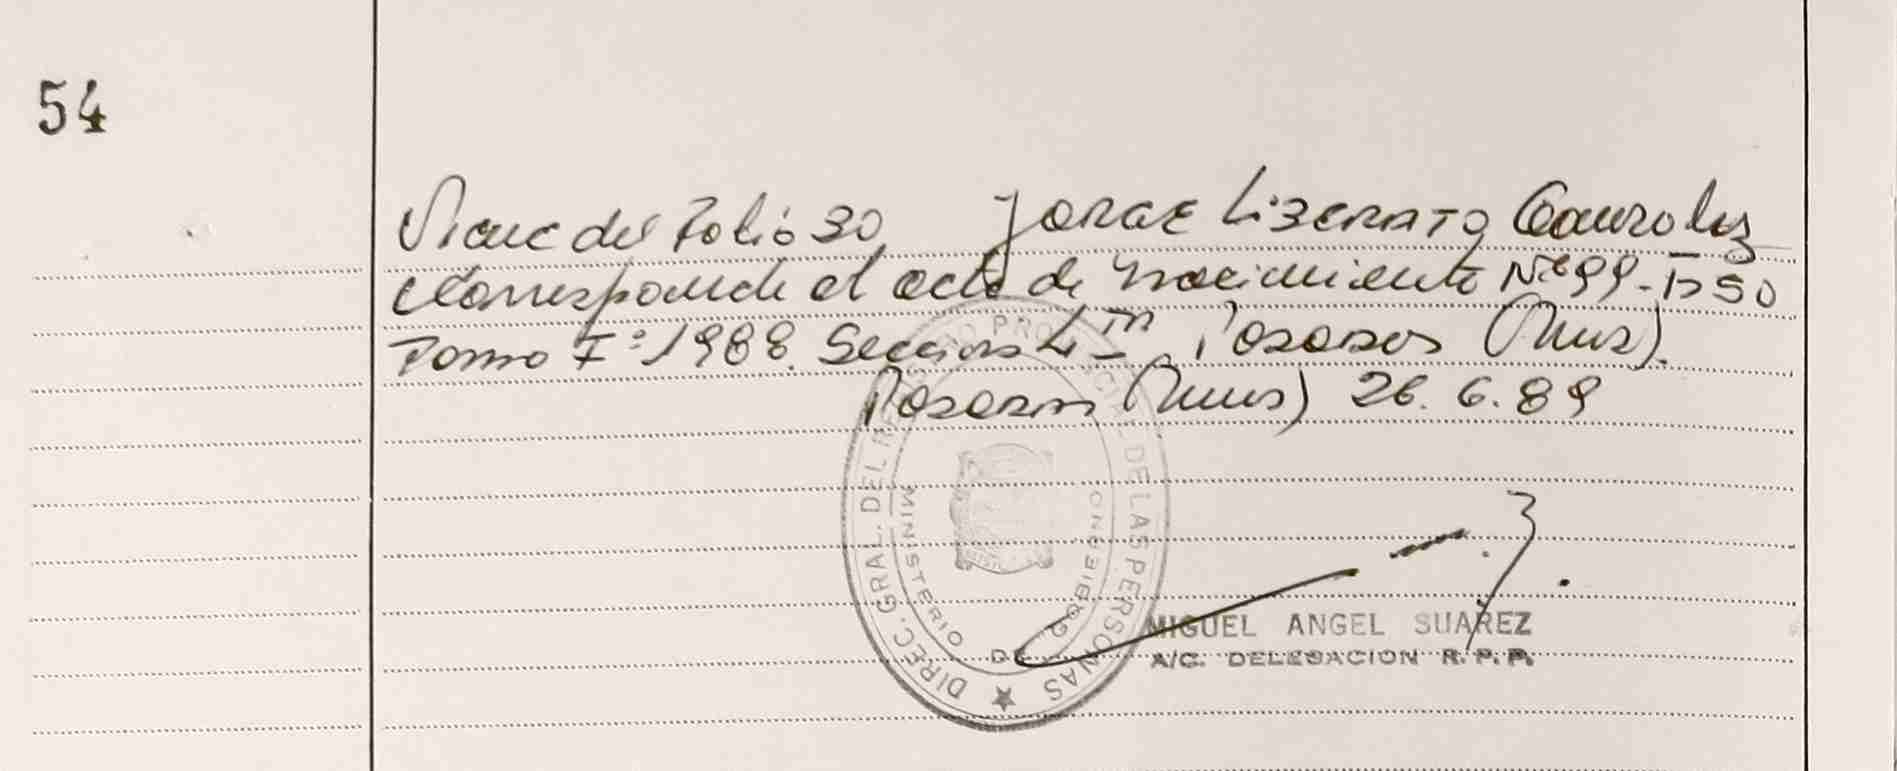 54
Viene del Folió 30 JORGE LIBERATO González
Corresponde al acta de nacimiento Nº 99 - Fº 50
Tomo Iº 1988. Sección 4ª Posadas (Mnes).
Posadas (Mnes) 26.6.89
DIREC. GRAL. DEL REGISTRO PROVINCIAL DE LAS PERSONAS
MINISTERIO DE GOBIERNO
MIGUEL ANGEL SUAREZ
A/C. DELEGACION R.P.P.